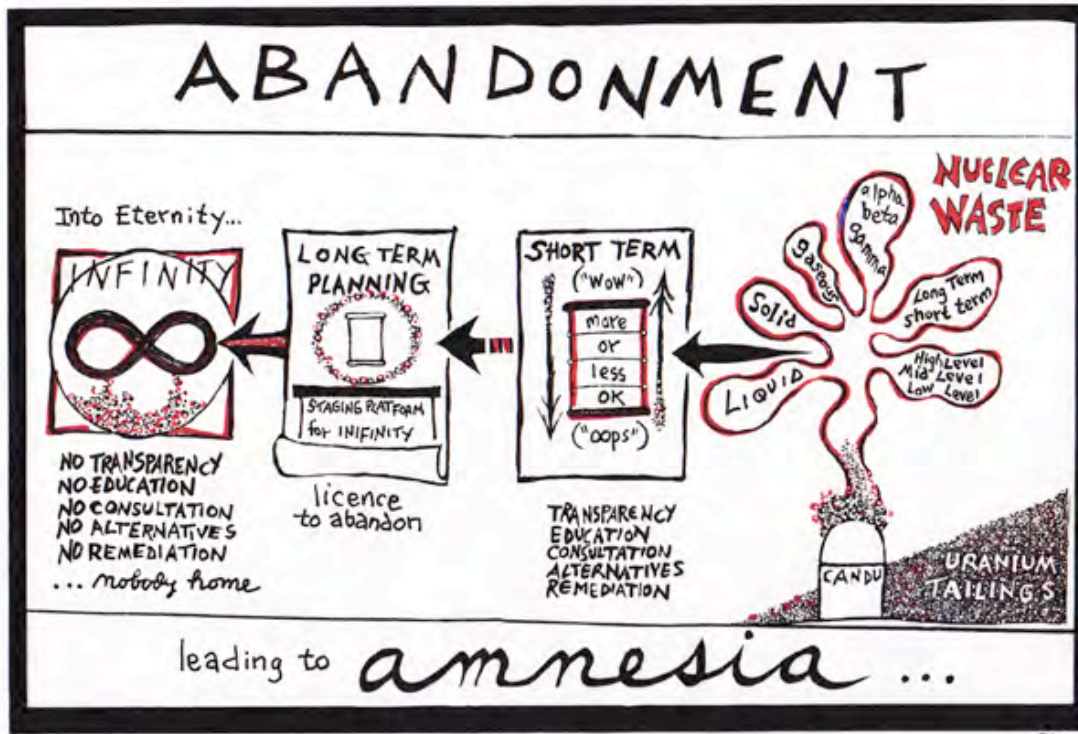 ABANDONMENT
Into Eternity...
INFINITY
NO TRANSPARENCY
NO EDUCATION
NO CONSULTATION
NO ALTERNATIVES
NO REMEDIATION
... nobody home
LONG TERM
PLANNING
STAGING PLATFORM
for INIFINITY
licence
to abandon
SHORT TERM
("WOW")
more
or
less
OK
("OOPS")
TRANSPARENCY
EDUCATION
CONSULTATION
ALTERNATIVES
REMEDIATION
NUCLEAR
WASTE
LIQUID
Solid
gaseous
alpha
beta
gamma
Long Term
short term
High Level
Mid Level
Low Level
CANDU
URANIUM
TAILINGS
leading to amnesia ...